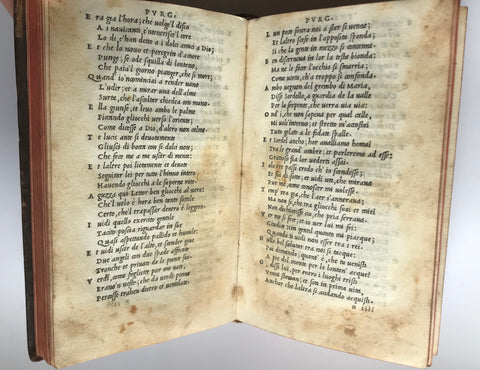 PVRG.
E ra gia l'hora; che uolge'l disio
A i nauicanti, e'ntenerisce'l core
Lo di, c'han detto a i dolci amici a Dio;
E t che lo nouo et peregrin d'amore
Punge; se ode squilla di lontano,
Che paia'l giorno pianger, che si more;
Quand'io incominciai a render uano
L'udir; et a mirar una dell'alme
Surta, che l'ascoltar chiedea con mano.
E lla giunse, et leuo ambo le palme
Ficcando gliocchi uerso l'oriente;
Come dicesse a Dio, d'altro non calme
T e lucis ante si deuotamente
Gliusci di bocca, et con si dolci note,
Che fece me a me uscir di mente:
E t l'altre poi dolcemente et deuote
Seguitar lei per tutto l'hinno intero
Hauendo gliocchi a le superne rote
A guzza qui Lettor ben gliocchi al uero;
Che'l uelo è hora ben tanto sottile
Certo, che'l trapassar dentro è leggero.
I uidi quello exercito gentile
Tacito poscia riguardar in sue
Quasi aspettando pallido et humile:
E t uidi uscir de l'alto, et scender giue
Due angeli con due spade affocate
Tronche et priuate de le punte sue.
V erdi, come fogliette pur mo nate,
Erano'n ueste; che da uerdi penne
Percosse trahen dietro et uentilate.
PVRG.
L'un poco soura noi a star si uenne;
Et l'altro scese in l'opposita sponda;
Si che la gente in mezzo si contenne.
B en discerneua in lor la testa bionda:
Ma ne le faci l'occhio si smarria;
Come uirtu, ch'a troppo si confonda
A mbo uegnon del grembo di Maria,
Disse Sordello, a guardia de la ualle
Per lo serpente, che uerra uia uia:
O nd'i, che non sapeua per qual calle,
Mi uolsi'ntorno; et stretto m'accostai
Tutto gelato a le fidate spalle.
E t Sordel ancho: hor auallamo homai
Tra le grandi ombre; et parleremo ad esse;
Gratioso fia lor uederui assai.
S olo tre passi credo ch'io scendesse;
Et fui di sotto, et uidi un, che miraua
Pur me, come conoscer mi uolesse.
T emp'era gia, che l'aer s'anneraua;
Ma non si, che tra gliocchi suoi et miei
Non dichiarasse cio, che pria serraua.
V er me si fece; et io uer lui mi fei.
Giudice Nin gentil quanto mi piacque;
Quando ti uidi non esser tra i rei.
N ullo bel salutar tra noi si tacque:
Poi dimando; quant'è, che tu uenisti
A pie del monte per le lontan' acque?
O , dissi lui, per entro i luoghi tristi
Venni stamani; et son in prima uita,
Anchor che l'altra si andando acquisti.
n iiii